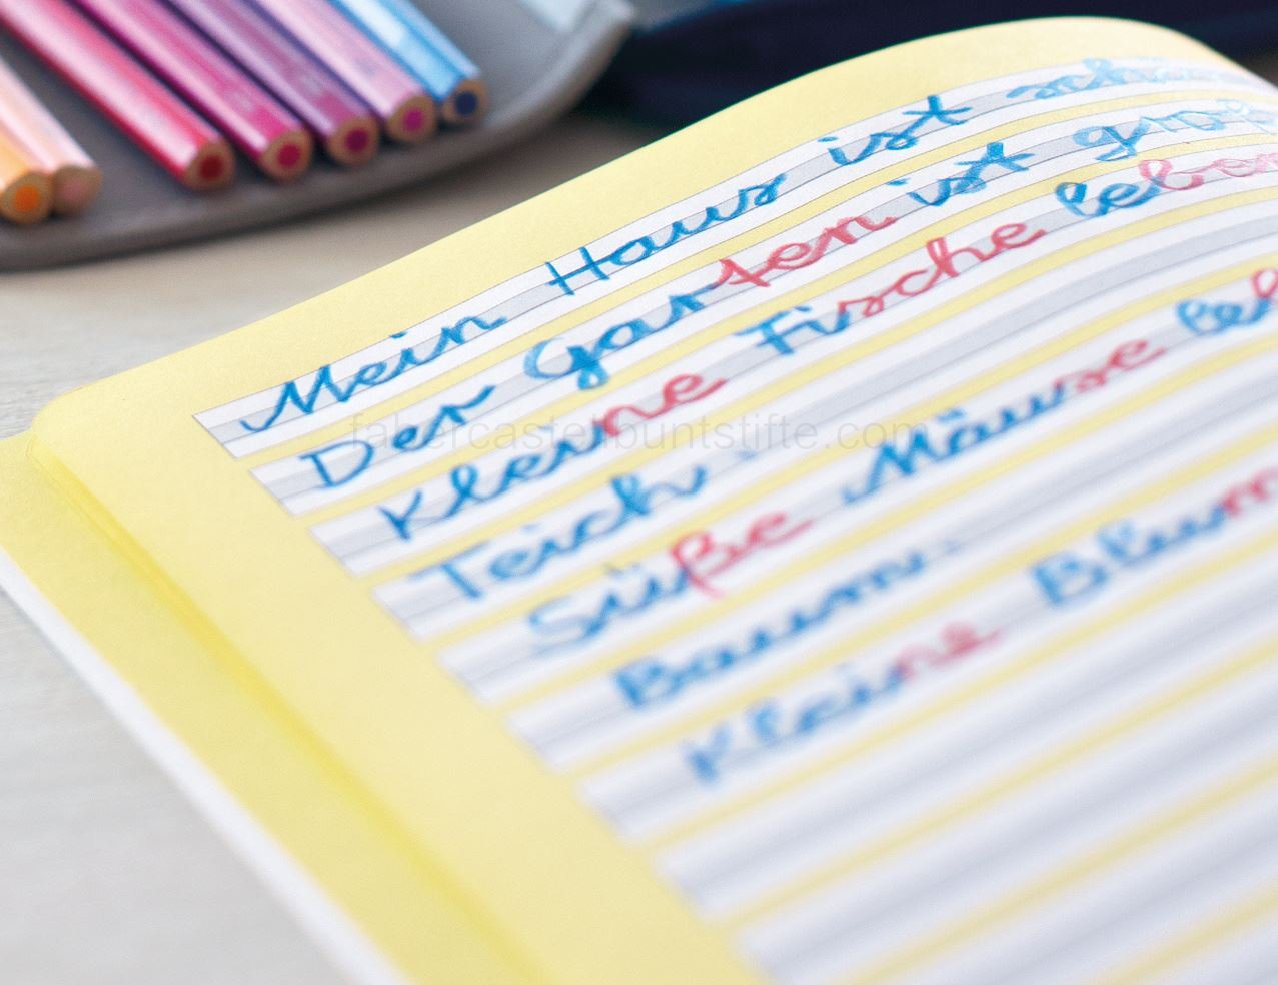 Mein Haus ist
Der Garten ist groß
Kleine Fische leben
Teich.
Süße Mäuse
Baum.
Kleine
fabercastellbuntstifte.com